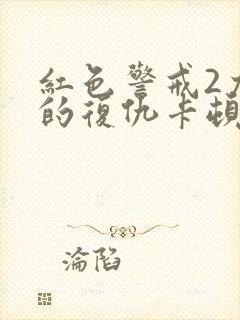 紅色警戒2尤
的復仇卡頓
淪陷